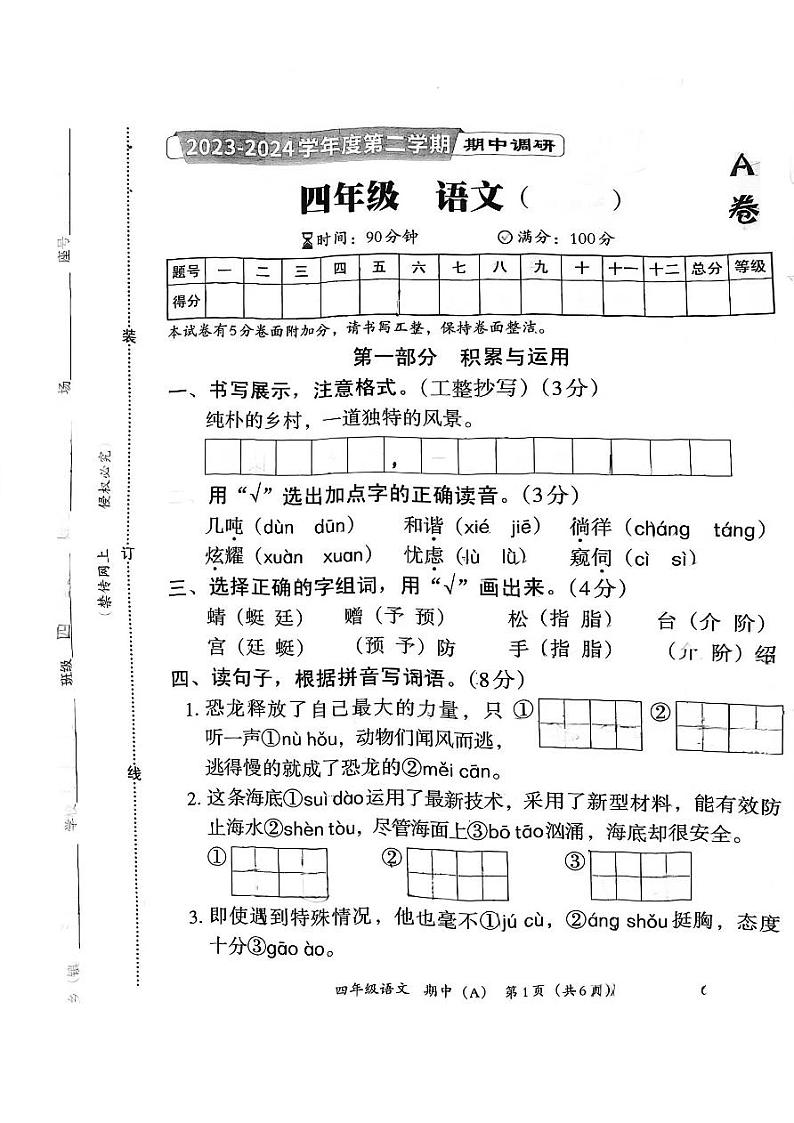 2023-2024学年度第二学期 期中调研
A卷
四年级 语文( )
时间：90分钟 满分：100分
题号 一 二 三 四 五 六 七 八 九 十 十一 十二 总分 等级
得分
本试卷有5分卷面附加分，请书写工整，保持卷面整洁。
第一部分 积累与运用
一、书写展示，注意格式。（工整抄写）（3分）
纯朴的乡村，一道独特的风景。
，
用“√”选出加点字的正确读音。（3分）
几吨（dùn dūn） 和谐（xié jiē） 徜徉（cháng táng）
炫耀（xuàn xuan） 忧虑（lù lǜ） 窥伺（cì sì）
三、选择正确的字组词，用“√”画出来。（4分）
蜻（蜓 廷） 赠（予 预） 松（指 脂） 台（介 阶）
宫（廷 蜓） （预 予）防 手（指 脂） （介 阶）绍
四、读句子，根据拼音写词语。（8分）
1. 恐龙释放了自己最大的力量，只 ① ②
听一声①nù hǒu，动物们闻风而逃，
逃得慢的就成了恐龙的②měi cān。
2. 这条海底①suì dào运用了最新技术，采用了新型材料，能有效防
止海水②shèn tòu，尽管海面上③bō tāo汹涌，海底却很安全。
① ② ③
3. 即使遇到特殊情况，他也毫不①jú cù，②áng shǒu挺胸，态度
十分③gāo ào。
四年级语文 期中（A） 第1页（共6页）
座号
场
班级 四
学校
乡（镇
（禁传网上 侵权必究）
装
订
线